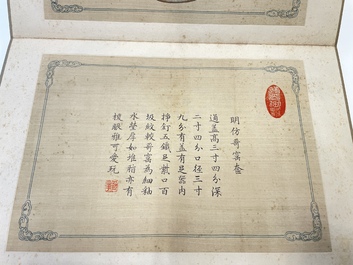 明仿哥窯奩
通蓋高三寸四分深
二寸四分口徑三寸
九分有蓋有足器內
掙釘五鐵足口百
圾紋較哥窯為細釉
水瑩厚如堆脂亦有
椶眼雅可愛玩